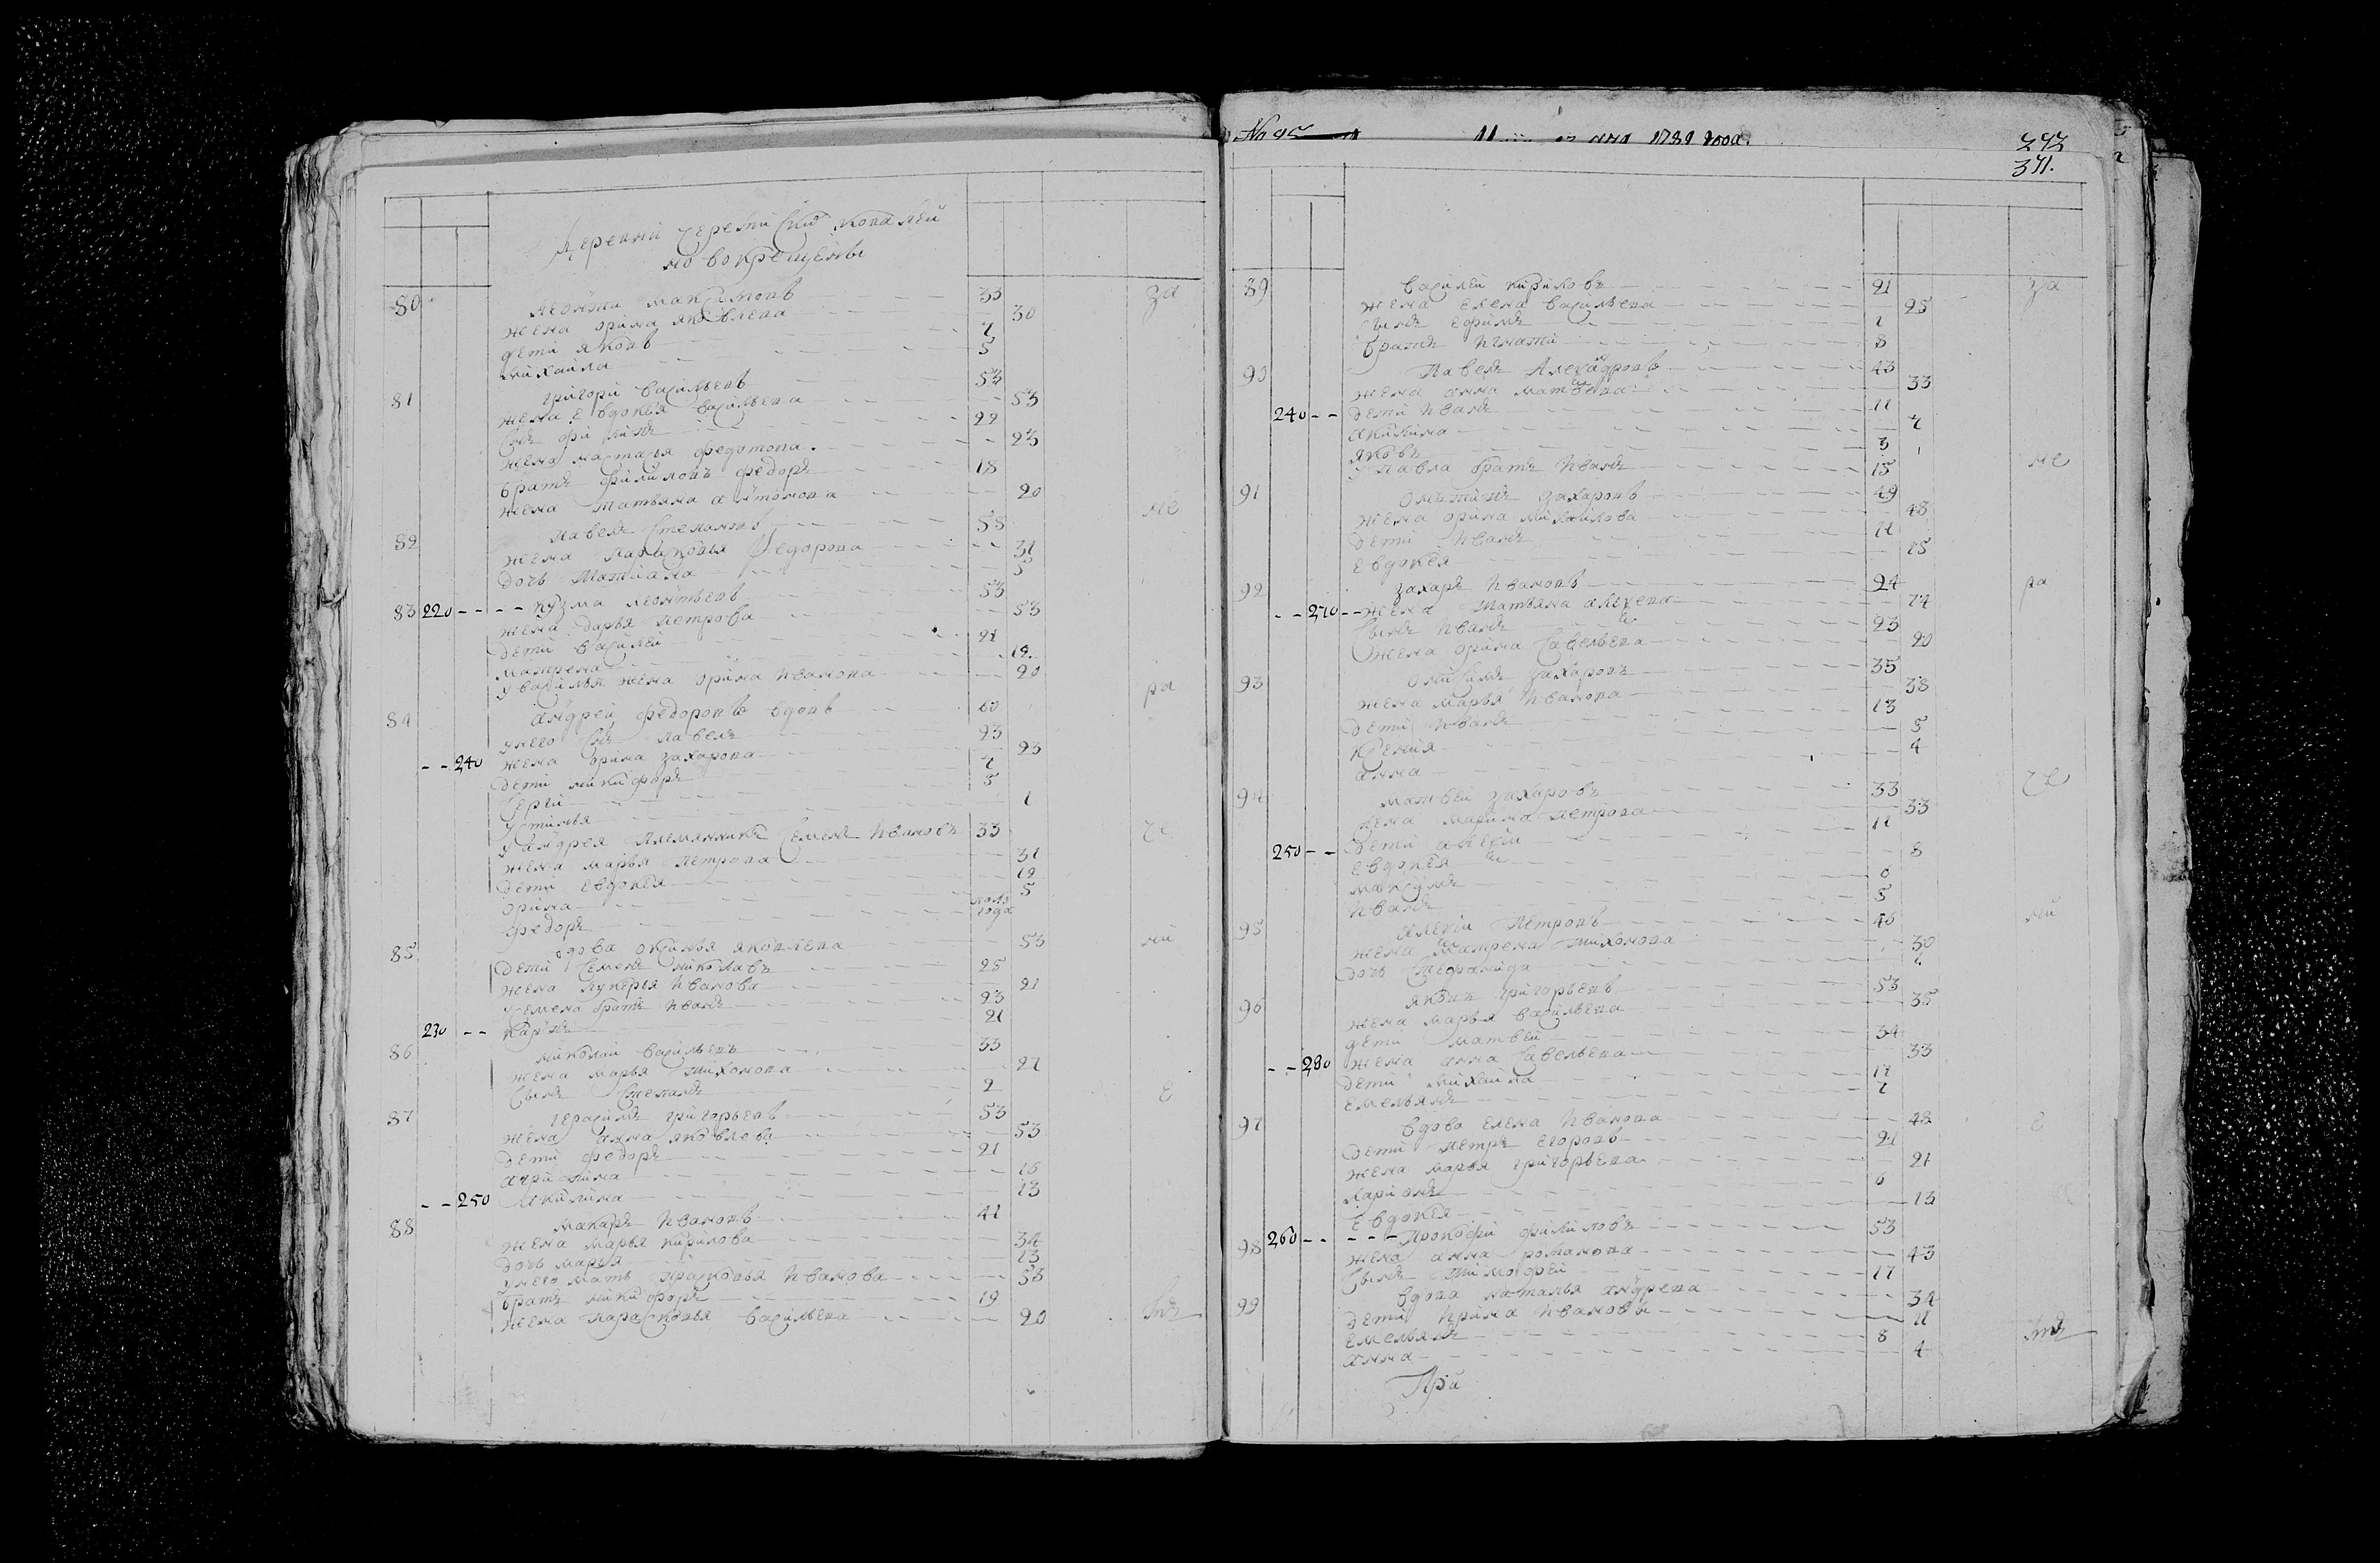 Деревни черемиской копалей
новокрещены
80 Леонти максимовъ 33 за
жена орина яковлева 30
дети яковъ 7
михаила 5
81 григори васильевъ 53
жена евдокея васильева 53
снъ филипъ 22
жена мастарья федотова 23
братъ филиповъ федоръ 18
жена татьяна антонова 20
82 павелъ степановъ 58 не
жена парасковья федорова 31
дочь татиана 5
83 220 кузма леонтьевъ 53
жена дарья петрова 53
дети василей 21
матрена 12
у василья жена орина иванова 20
84 андрей федоровъ вдовъ 60 ра
у него снъ павелъ 23
240 жена орина захарова 23
дети никифоръ 7
сергей 5
устинья 1
у андрея племянникъ семенъ ивановъ 33 че
жена марья петрова 31
дети евдокея 12
орина 5
федоръ полъ года
85 вдова оксинья яковлева 53 ни
дети семенъ николаевъ 25
жена лукерья иванова 21
у семена братъ иванъ 23
230 карпъ 21
86 николай васильевъ 33
жена марья тихонова 27
сынъ степанъ 2 е
87 герасимъ григорьевъ 53
жена анна яковлева 53
дети федоръ 21
агрипина 16
250 акилина 13
88 макаръ ивановъ 41
жена марья кирилова 34
дочь марья 13
у него мать прасковья иванова 53
братъ никифоръ 19
жена парасковья васильева 20 мъ
No 95 дня 1781 года.
292
371.
89 василей кириловъ 21 за
жена елена васильева 25
сынъ ефимъ 1
братъ игнати 8
90 павелъ александровъ 43
жена анна матвеева 33
240 дети иванъ 11
акилина 7
яковъ 3
у павла братъ иванъ 15 не
91 захаровъ 49
жена орина михайлова 48
дети иванъ 11
евдокея 15
92 захаръ ивановъ 94 ра
270 жена татьяна алексеева 74
сынъ иванъ 23
жена орина савельева 20
93 захаровъ 35
жена марья иванова 38
дети иванъ 13
ксения 5
анна 4
94 матвей захаровъ 33 че
жена марина петрова 33
250 дети алексей 11
евдокея 8
максимъ 6
иванъ 5
95 алексей петровъ 46 ни
жена матрена тихонова 30
дочь стефанида 7
96 яковъ григорьевъ 53
жена марья васильева 35
дети матвей 34
280 жена анна савельева 33
дети михаила 11
емельянъ 7
97 вдова елена иванова 48 е
дети петръ егоровъ 21
жена марья григорьева 21
ларионъ 6
евдокея 13
98 260 прокофи филиповъ 53
жена анна романова 43
сынъ тимофей 17
99 вдова наталья андреева 34
дети ирина ивановы 11
емельянъ 8 мъ
анна 4
При